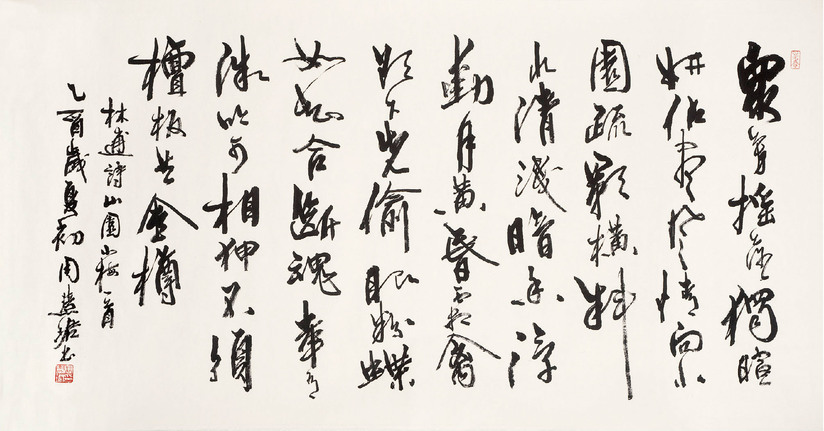 眾芳搖落獨暄
妍佔盡風情向小
園疏影橫斜
水清淺暗香浮
動月黃昏霜禽
欲下先偷眼粉蝶
如知合斷魂幸有
微吟可相狎不須
檀板共金樽
林逋詩山園小梅一首
乙酉歲夏初周慧珺書